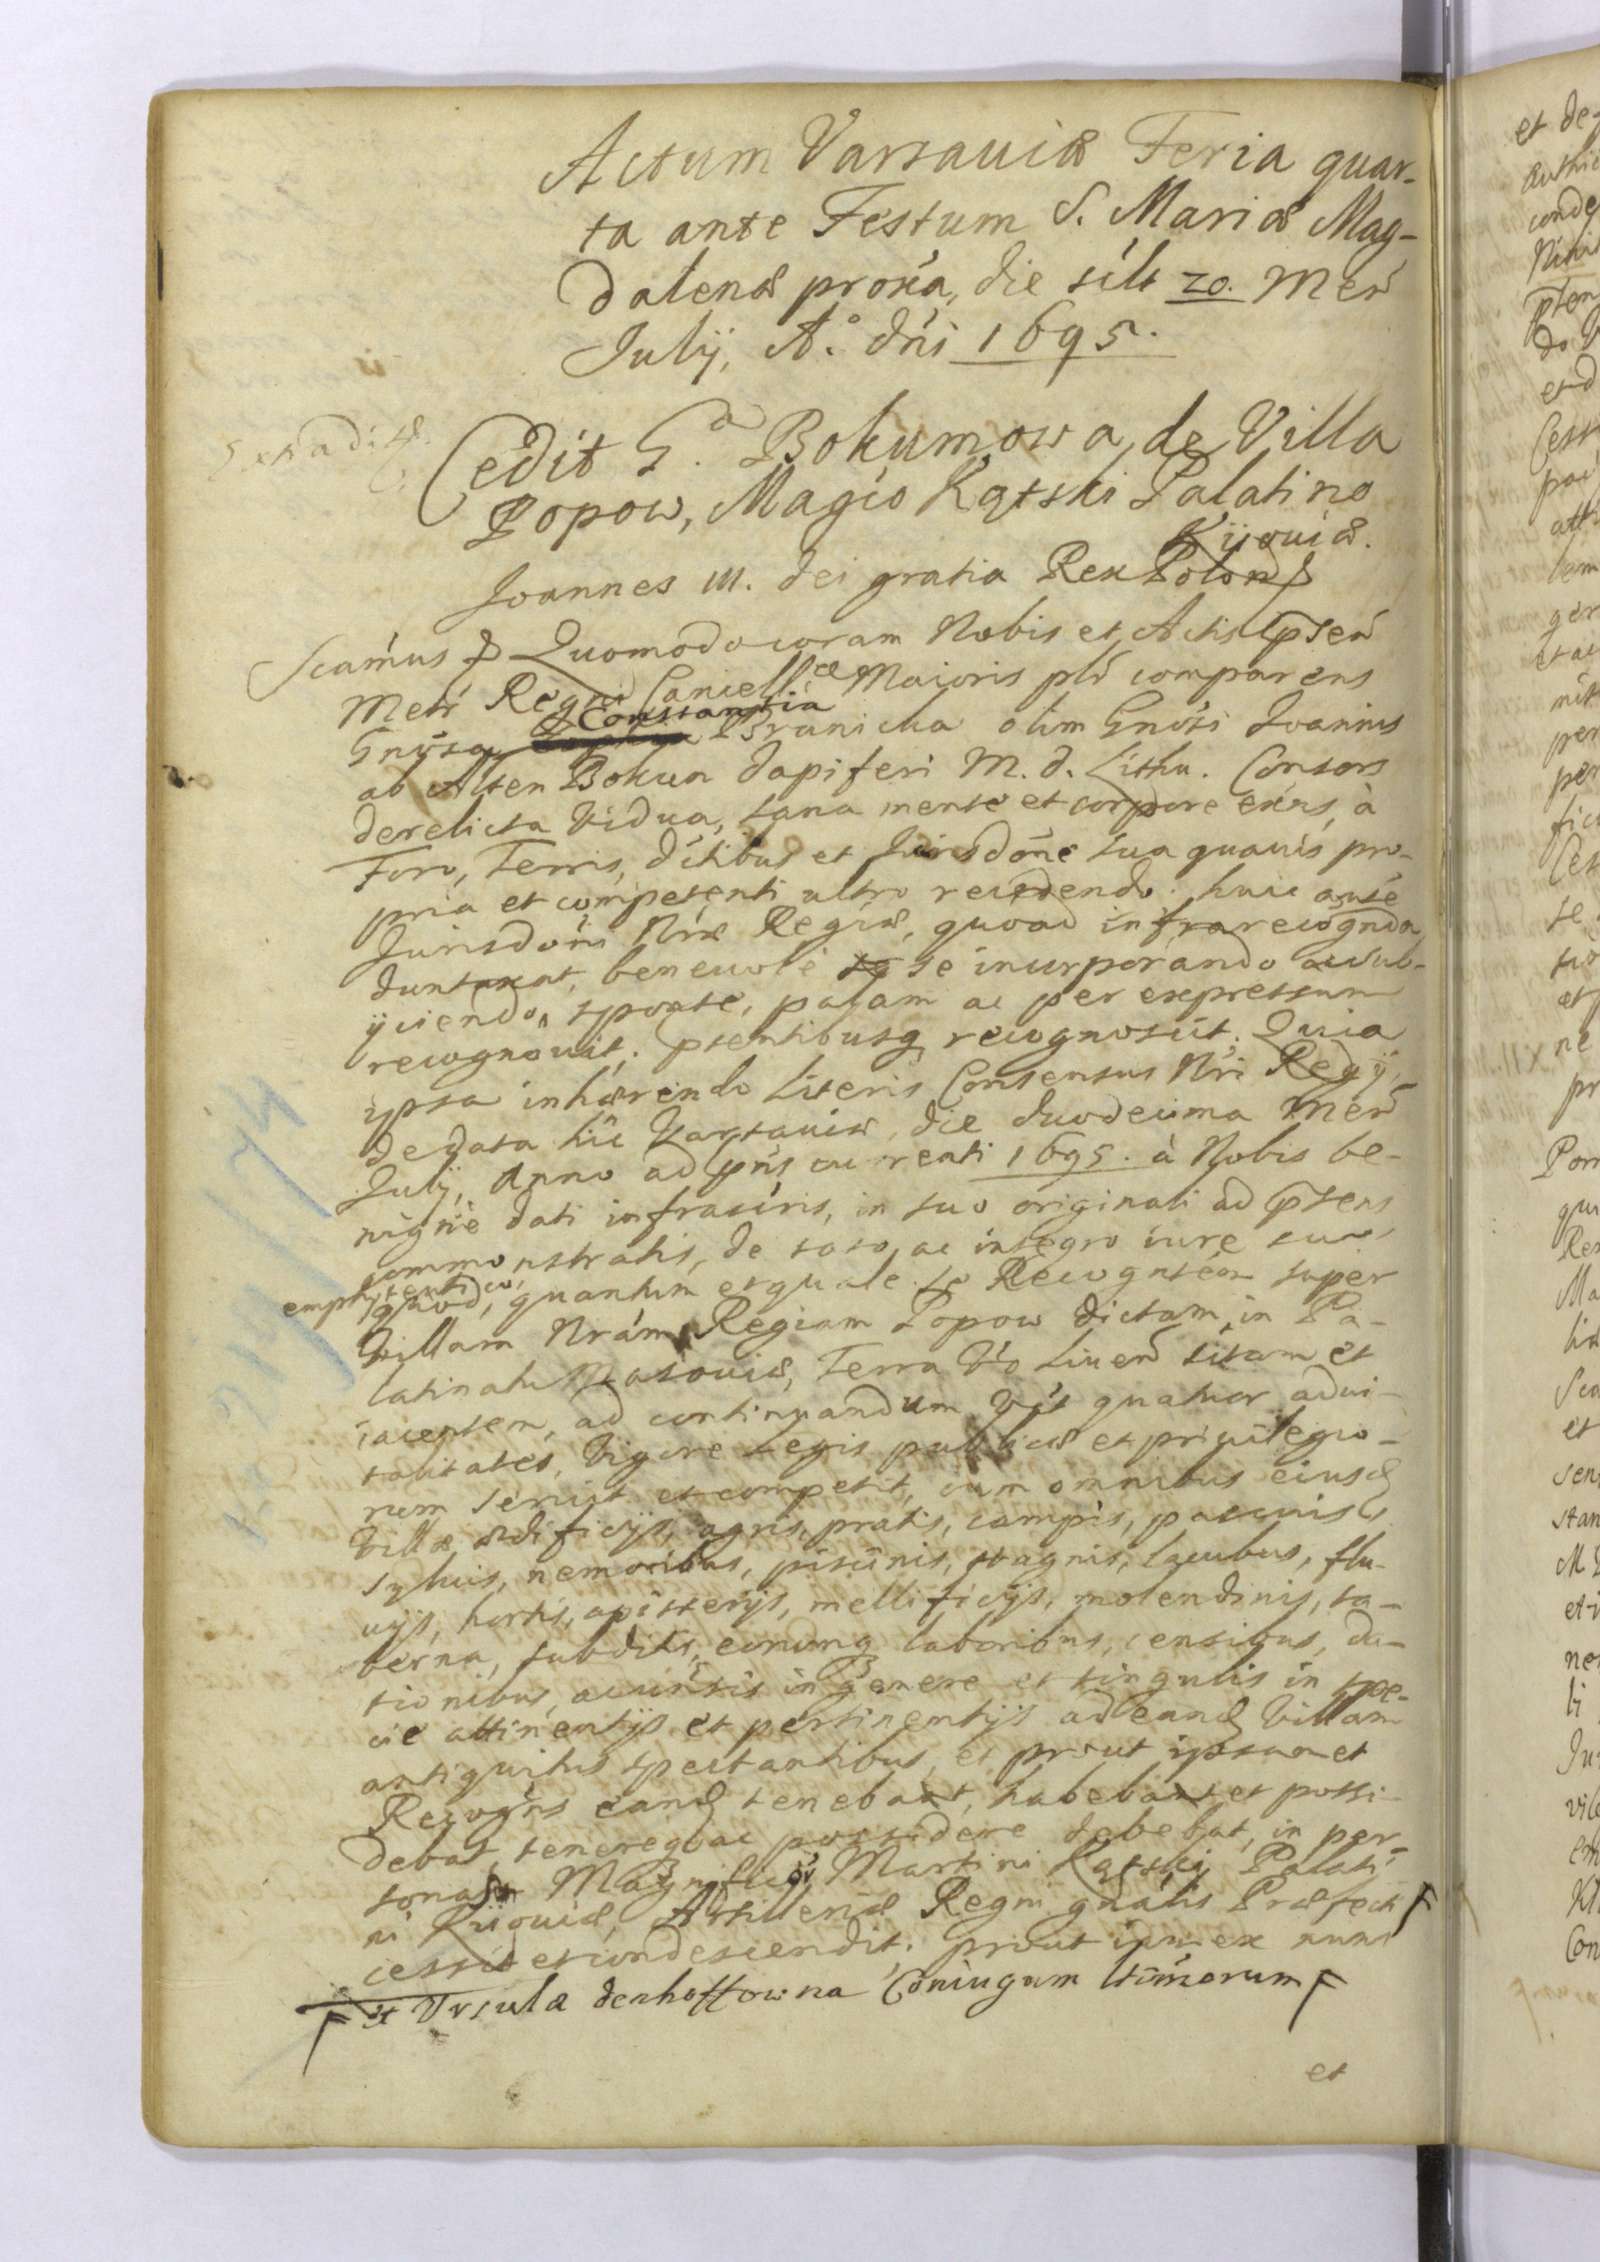 Actum Varsauiæ Feria quar-
ta ante Festum S. Mariæ Mag-
dalenæ proxa, die scilt 20. Mens
Julij, Ao. dni 1695.
Extradit.
Cedit Ga Bokumowa de Villa
Popow, Magco Kątski Palatino
Kijouiæ.
Joannes III. dei gratia Rex Polon
Quomodo coram Nobis et Actis pnten
Metr Regni Cancellæ Maioris plr comparens
Gnosa Constantia Branicka olim Gnosi Joannis
ab Alten Bokun dapiferi M. d. Lithu. Consors
derelicta Vidua, sana mente et corpore exns, à
Foro, Terris, dctibus et Jurisdone sua quauis pro-
pria et competenti ultro recedendo. huic autē
Jurisdoni Nræ Regiæ, quoad infrarecognda
duntaxat, beneuole se incorporando ac sub-
ijciendo, sponte, palam ac per expressum
recognouit. pntentibusq recognoscit. Quia
ipsa inhærendo Literis Consensus Nri Regij,
de data hic Varsauiæ, die duodecima Mens
Julij, Anno ad pns currenti 1695. à Nobis be-
nigne dati infrascris, in suo originali ad pntens
commonstratis, de toto ac integro iure suo
emphyteutico, quod, quantum et quale se Recognten super
Villam Nram Regiam Popow dictam, in Pa-
latinatu Masouiæ, Terra Vo Liuen sitam et
iacentem, ad continuandum Vst quatuor adui-
talitates, Vigore Legis publicæ et priuilegio-
rum seruit et competit, cum omnibus eiusd
Villæ ædificijs, agris, pratis, campis, pascuis,
syluis, nemoribus, piscinis, stagnis, lacubus, flu-
uijs, hortis, apisterijs, mellificijs, molendinis, ta-
berna, subditis, eorumq laboribus, censibus, da-
tionibus, acuntis in genere et singulis in spe-
cie attinentijs et pertinentijs ad eand Villam
antiquitus spectantibus, et prout ipsamet
Recogns eand tenebat, habebat et possi-
debat, tenereq ac possidere debebat, in per-
sonas Magnifici Martini Kątski Palati
ni Kijouiæ, Artilleriæ Regni gnalis Præfecti
cessit et condescendit, prout iam ex nunc
et Vrsula denhoffowna Coniugum ltimorum
et